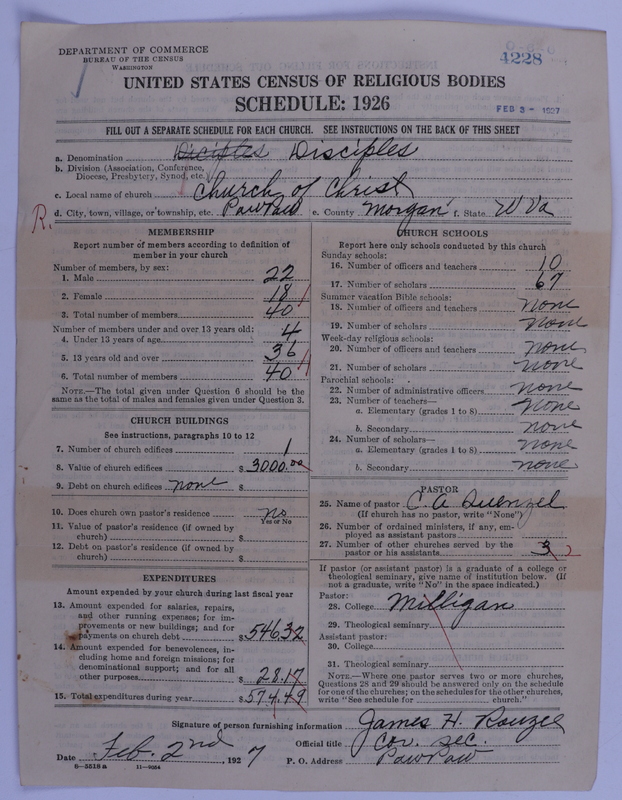 DEPARTMENT OF COMMERCE
BUREAU OF THE CENSUS
WASHINGTON
4228
UNITED STATES CENSUS OF RELIGIOUS BODIES
SCHEDULE: 1926
FEB 3 - 1927
FILL OUT A SEPARATE SCHEDULE FOR EACH CHURCH. SEE INSTRUCTIONS ON THE BACK OF THIS SHEET
a. Denomination Diciples Disciples
b. Division (Association, Conference, Diocese, Presbytery, Synod, etc.)
c. Local name of church Church of Christ
R. d. City, town, village, or township, etc. PawPaw e. County Morgan f. State W Va
MEMBERSHIP
Report number of members according to definition of
member in your church
Number of members, by sex:
1. Male 22
2. Female 18
3. Total number of members 40
Number of members under and over 13 years old:
4. Under 13 years of age 4
5. 13 years old and over 36
6. Total number of members 40
NOTE.—The total given under Question 6 should be
same as the total of males and females given under Question 3.
CHURCH BUILDINGS
See instructions, paragraphs 10 to 12
7. Number of church edifices 1
8. Value of church edifices $ 3000.00
9. Debt on church edifices none $
10. Does church own pastor's residence no
Yes or No
11. Value of pastor's residence (if owned by
church) $
12. Debt on pastor's residence (if owned by
church) $
EXPENDITURES
Amount expended by your church during last fiscal year
13. Amount expended for salaries, repairs,
and other running expenses; for im-
provements or new buildings; and for
payments on church debt $ 546.32
14. Amount expended for benevolences, in-
cluding home and foreign missions; for
denominational support; and for all
other purposes $ 28.17
15. Total expenditures during year $ 574.49
CHURCH SCHOOLS
Report here only schools conducted by this church
Sunday schools:
16. Number of officers and teachers 10
17. Number of scholars 67
Summer vacation Bible schools:
18. Number of officers and teachers none
19. Number of scholars none
Week-day religious schools:
20. Number of officers and teachers none
21. Number of scholars none
Parochial schools:
22. Number of administrative officers none
23. Number of teachers—
a. Elementary (grades 1 to 8) none
b. Secondary none
24. Number of scholars—
a. Elementary (grades 1 to 8) none
b. Secondary none
PASTOR
25. Name of pastor C. A. Quenzel
(If church has no pastor, write "None")
26. Number of ordained ministers, if any, em-
ployed as assistant pastors
27. Number of other churches served by the
pastor or his assistants 3 2
If pastor (or assistant pastor) is a graduate of a college or
theological seminary, give name of institution below. (If
not a graduate, write "No" in the space indicated.)
Pastor:
28. College Milligan
29. Theological seminary
Assistant pastor:
30. College
31. Theological seminary
NOTE.—Where one pastor serves two or more churches,
Questions 28 and 29 should be answered only on the schedule
for one of the churches; on the schedules for the other churches,
write "See schedule for church."
Signature of person furnishing information James H. Rouzee
Official title Cor. Sec.
Date Feb. 2nd 1927 P. O. Address PawPaw
6—5518 a 11—9034